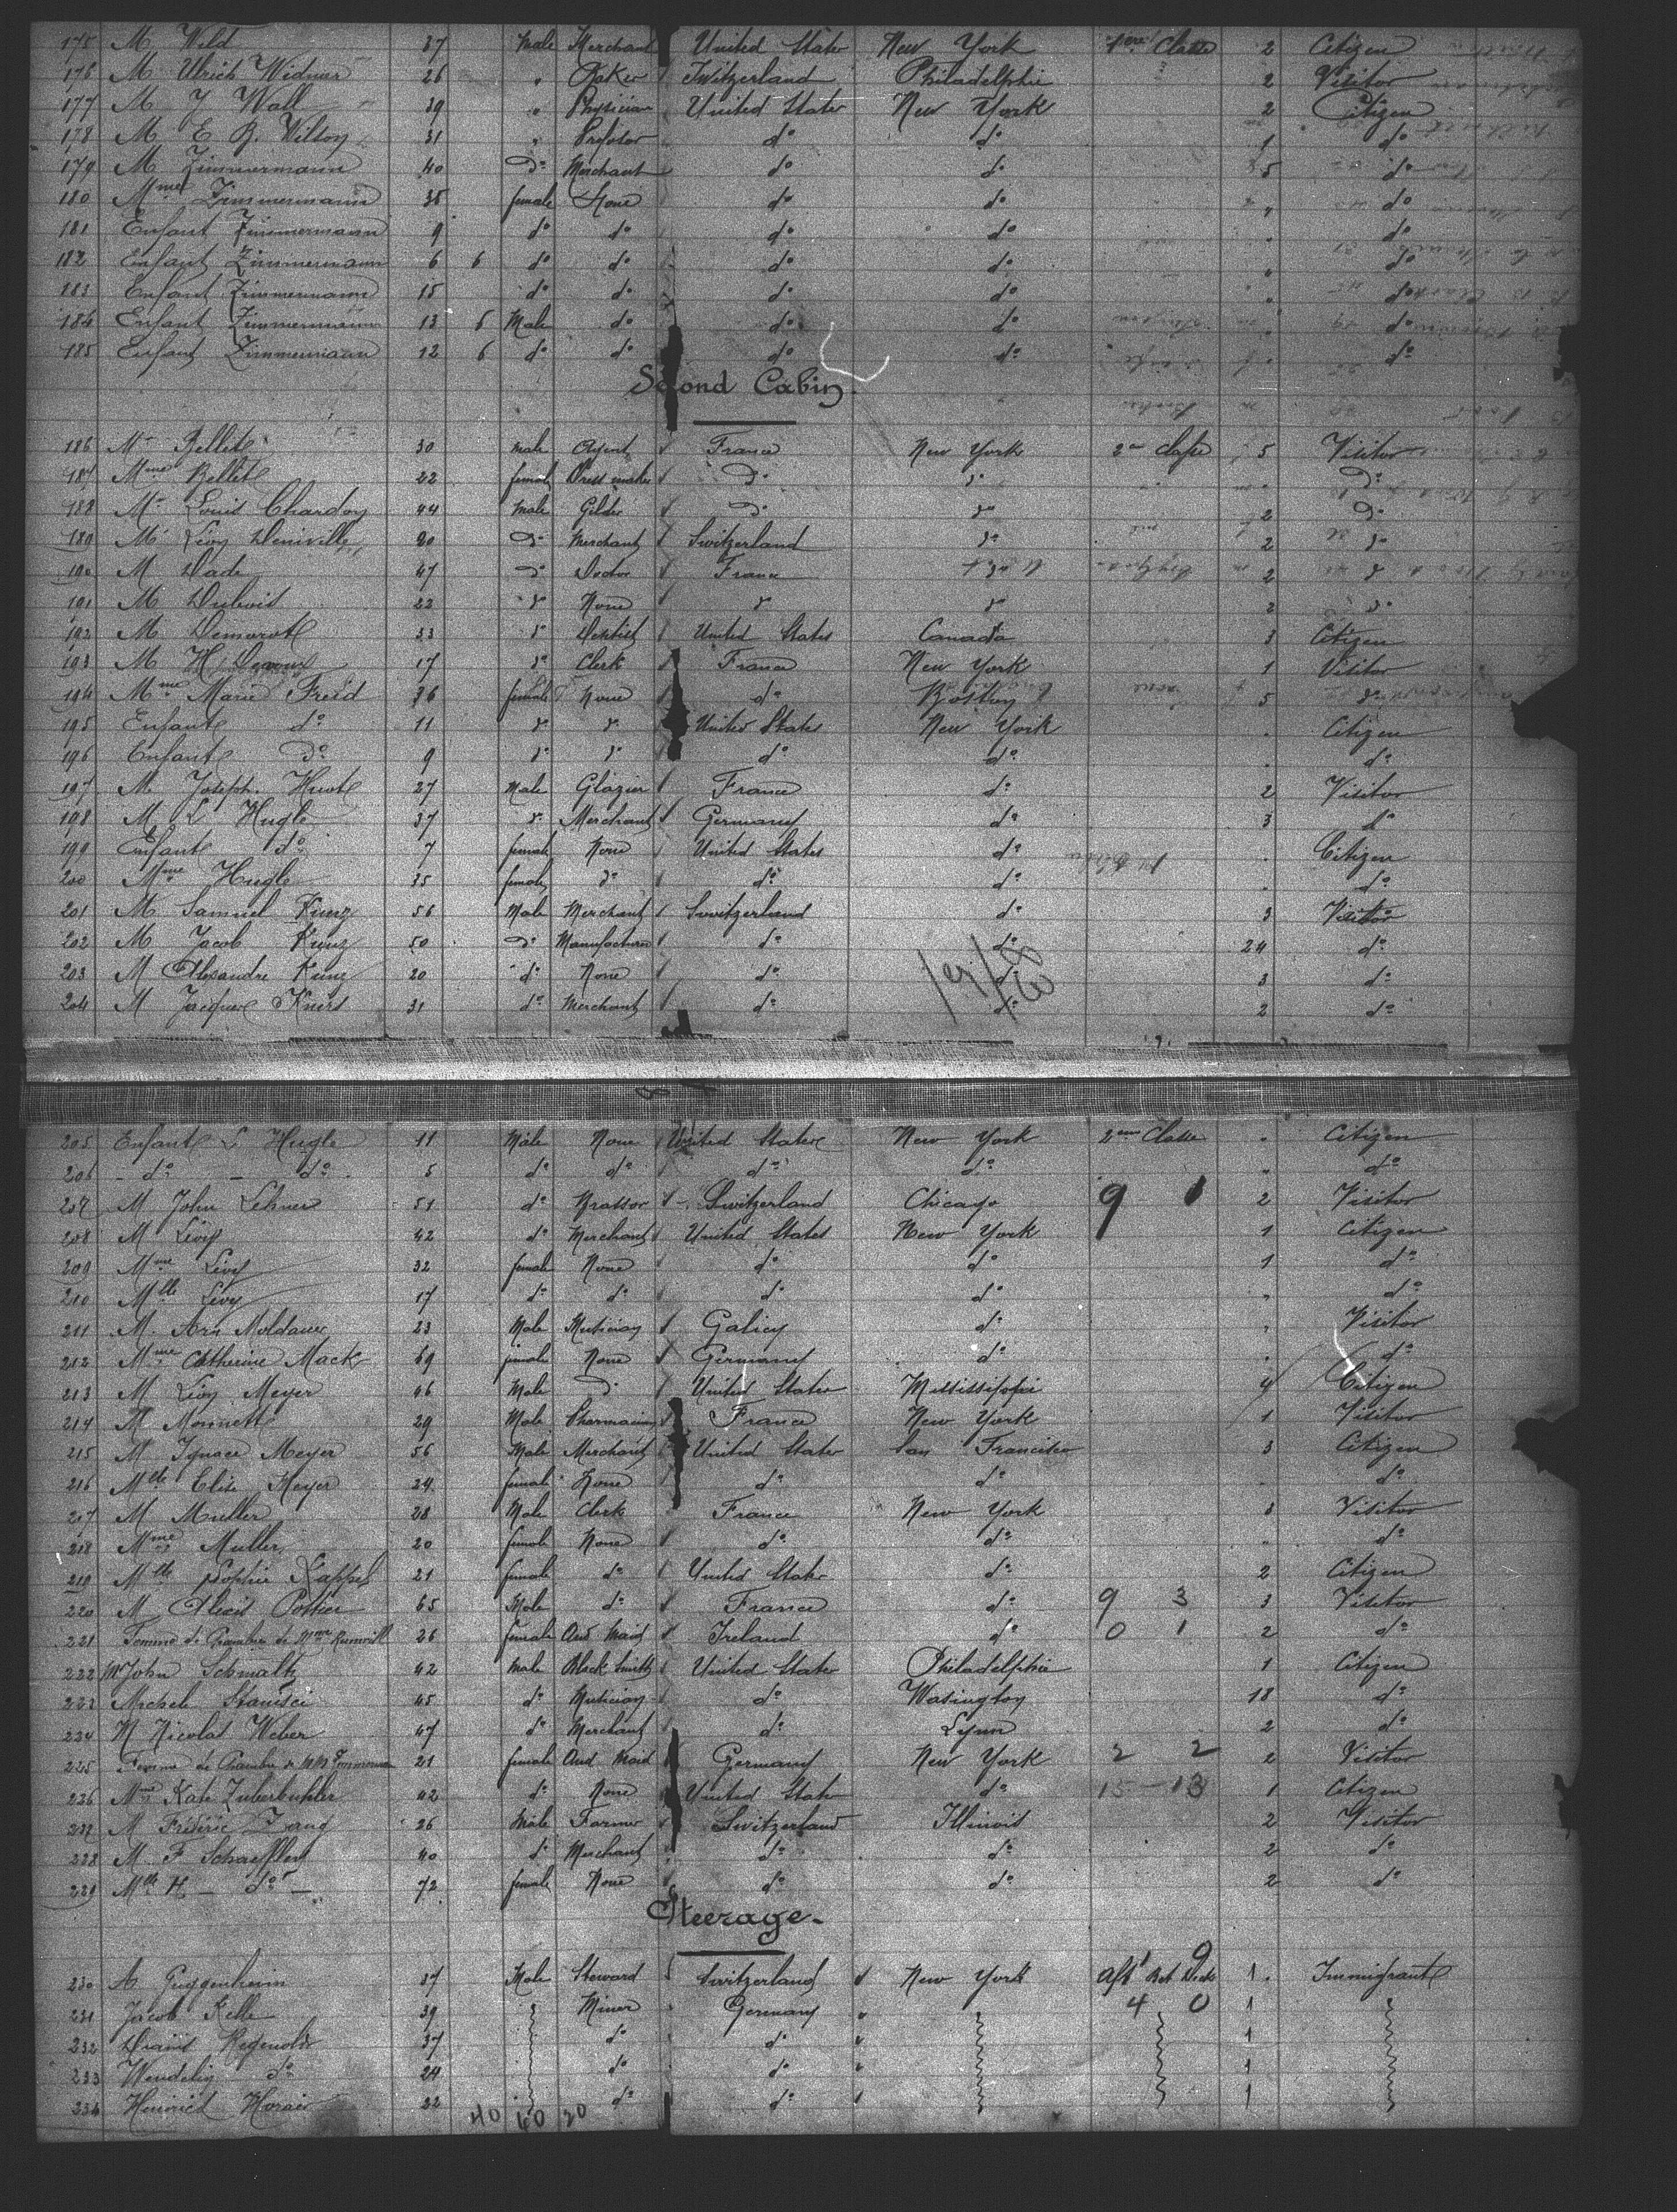 175 M Wild 37 Male Merchant United States New York 1ère Classe 2 Citizen
176 M Ulrich Widmer 26 " Baker Switzerland Philadelphia 2 Visitor
177 M J Wall 39 " Physician United States New York 2 Citizen
178 M E B. 31 " do do 1 do
179 M Zimmermann 40 do Merchant do do 5 do
180 Mme Zimmermann 35 female None do do " do
181 Enfant Zimmermann 9 do do do do " do
182 Enfant Zimmermann 6 6 do do do do " do
183 Enfant Zimmermann 15 do do do do " do
184 Enfant Zimmermann 13 6 Male do do do " do
185 Enfant Zimmermann 12 6 do do do do " do
Second Cabin
186 Mr Bellet 30 male Agent France New York 2me Classe 5 Visitor
187 Mme Bellet 22 female Dress maker do do " do
188 Mr Louis Chardon 44 Male Gilder do do 2 do
189 Mr Léon 20 do Merchant Switzerland do 2 do
190 M Dade 47 do Doctor France do 2 do
191 M Dubois 22 do None do do 2 do
192 M Demarot 33 do Dentist United States Canada 3 Citizen
193 M H 17 do Clerk France New York 1 Visitor
194 Mme Marie Freid 36 female None do Boston 5 do
195 Enfant do 11 do do United States New York . Citizen
196 Enfant do 9 do do do do . do
197 M Joseph Huot 27 Male Glazier France do 2 Visitor
198 M L Hugle 37 do Merchant Germany do 3 do
199 Enfant do 7 female None United States do . Citizen
200 Mme Hugle 35 female do do do . do
201 M Samuel Kunz 56 Male Merchant Switzerland do 3 Visitor
202 M Jacob Kunz 50 do Manufacturer do do 24 do
203 M Alexandre Kunz 20 do None do do 3 do
204 M Jacques 31 do Merchant do do 2 do
205 Enfant L Hugle 11 Male None United States New York 2me Classe " Citizen
206 - do - do 5 do do do do " do
207 M John Lehner 51 do Switzerland Chicago 9 1 2 Visitor
208 M Lévy 42 do Merchant United States New York 1 Citizen
209 Mme Lévy 32 female None do do 1 do
210 Mlle Lévy 17 do do do do " do
211 M. Aron Moldauer 23 Male Musician Galicy do " Visitor
212 Mme Catherine Mack 69 female None Germany do . do
213 M Léon Meyer 46 Male do United States Mississipi 4 Citizen
214 M Monnett 29 Male Pharmacien France New York 1 Visitor
215 M Ignace Meyer 56 Male Merchant United States San Francisco 3 Citizen
216 Mlle Elise Meyer 24 female None do do . do
217 M Muller 28 Male Clerk France New York 3 Visitor
218 Mme Muller 20 female None do do " do
219 Mlle Sophie Kappel 21 female do United States do 2 Citizen
220 M Alexis Pottier 65 Male do France do 9 3 3 Visitor
221 Femme de Chambre de Mme 26 female Maid Ireland do 0 1 2 do
222 M John Schmaltz 42 male Black Smith United States Philadelphia 1 Citizen
223 Michele Stanisci 45 do Musician do Wasington 18 do
224 M Nicolas Weber 47 do Merchant do Lynn 2 do
225 Femme de Chambre de Mme Zimmermann 21 female Maid Germany New York 2 2 2 Visitor
226 Mme Kate Zuberbuhler 42 do None United States do 15 - 13 1 Citizen
227 M Fréderic Zaug 26 Male Farmer Switzerland Illinois 2 Visitor
228 M F Schaefflert 40 do Merchant do do 2 do
229 Mlle H - do - 72 female None do do 2 do
Steerage
230 A. Guggenheim 37 Male Steward Switzerland New York Aft Bet Deck 9 1 Immigrant
231 Jacob Kelle 39 Miner Germany 4 0 1
232 37 do do 1
233 Wendelin do 24 do do 1
234 Heinrich 22 do do 1
40 60 20